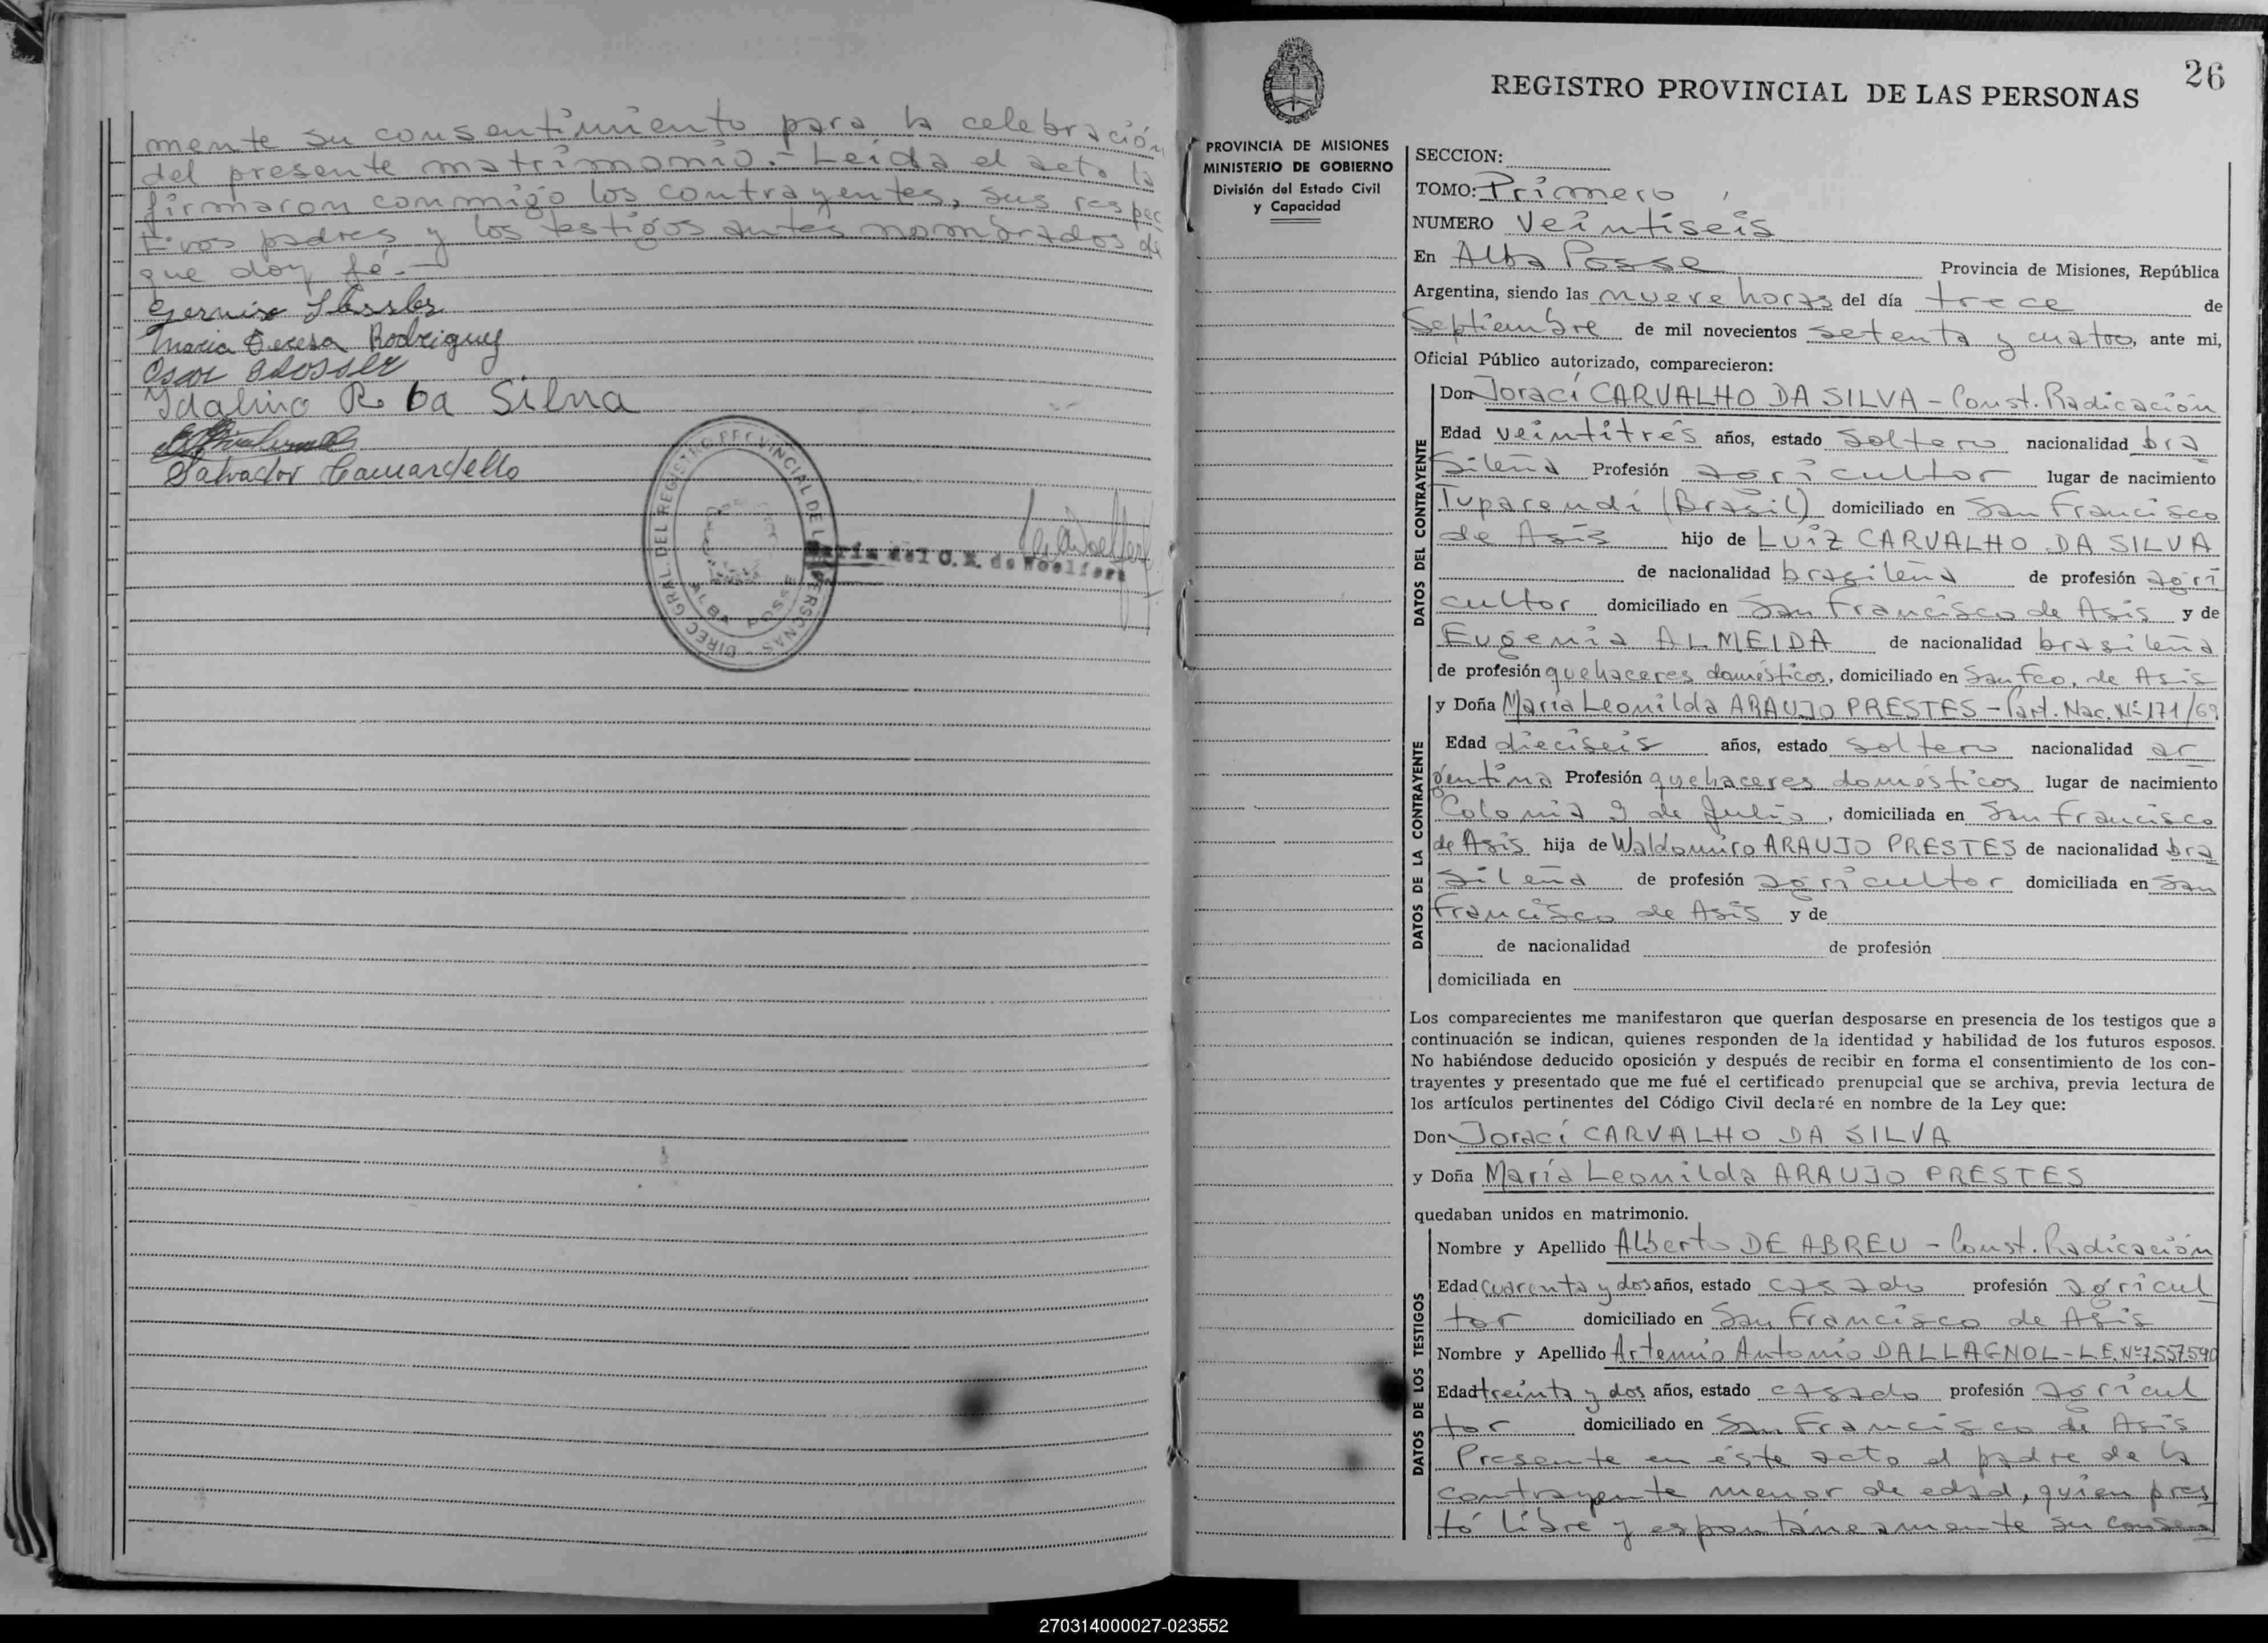 mente su consentimiento para la celebración
del presente matrimonio.- Leída el acta la
firmaron conmigo los contrayentes, sus respec
tivos padres y los testigos antes nombrados de
que doy fé.-
Maria Teresa Rodriguez
Idalino R. da Silva
Salvador Camardello
DIREC. GRAL. DEL REGISTRO PROVINCIAL DE LAS PERSONAS
ALBA POSSE
María del C. K. de Woelfert
26
REGISTRO PROVINCIAL DE LAS PERSONAS
PROVINCIA DE MISIONES
MINISTERIO DE GOBIERNO
División del Estado Civil
y Capacidad
SECCION:
TOMO: Primero
NUMERO Veintiseis
En Alba Posse Provincia de Misiones, República
Argentina, siendo las nueve horas del día trece de
Septiembre de mil novecientos setenta y cuatro, ante mi,
Oficial Público autorizado, comparecieron:
DATOS DEL CONTRAYENTE
Don Joraci CARVALHO DA SILVA - Const. Radicación
Edad veintitrés años, estado soltero nacionalidad bra
sileña Profesión agricultor lugar de nacimiento
Tuparendí (Brasil) domiciliado en San Francisco
de Asis hijo de Luiz CARVALHO DA SILVA
de nacionalidad brasileña de profesión agri
cultor domiciliado en San Francisco de Asis y de
Eugenia ALMEIDA de nacionalidad brasileña
de profesión quehaceres domésticos, domiciliado en San Fco. de Asis
DATOS DE LA CONTRAYENTE
y Doña María Leonilda ARAUJO PRESTES - Part. Nac. Nº 171/69
Edad dieciseis años, estado soltero nacionalidad ar
gentina Profesión quehaceres domésticos lugar de nacimiento
Colonia 9 de Julio, domiciliada en San Francisco
de Asis hija de Waldomiro ARAUJO PRESTES de nacionalidad bra
sileña de profesión agricultor domiciliada en San
Francisco de Asis y de
de nacionalidad de profesión
domiciliada en
Los comparecientes me manifestaron que querían desposarse en presencia de los testigos que a
continuación se indican, quienes responden de la identidad y habilidad de los futuros esposos.
No habiéndose deducido oposición y después de recibir en forma el consentimiento de los con-
trayentes y presentado que me fué el certificado prenupcial que se archiva, previa lectura de
los artículos pertinentes del Código Civil declaré en nombre de la Ley que:
Don Joraci CARVALHO DA SILVA
y Doña María Leonilda ARAUJO PRESTES
quedaban unidos en matrimonio.
DATOS DE LOS TESTIGOS
Nombre y Apellido Alberto DE ABREU - Const. Radicación
Edad cuarenta y dos años, estado casado profesión agricul
tor domiciliado en San Francisco de Asis
Nombre y Apellido Artemio Antonio DALLAGNOL - L.E. Nº 7.557.590
Edad treinta y dos años, estado casado profesión agricul
tor domiciliado en San Francisco de Asis
Presente en éste acto el padre de la
contrayente menor de edad, quien pres
tó libre y espontáneamente su consen
270314000027-023552